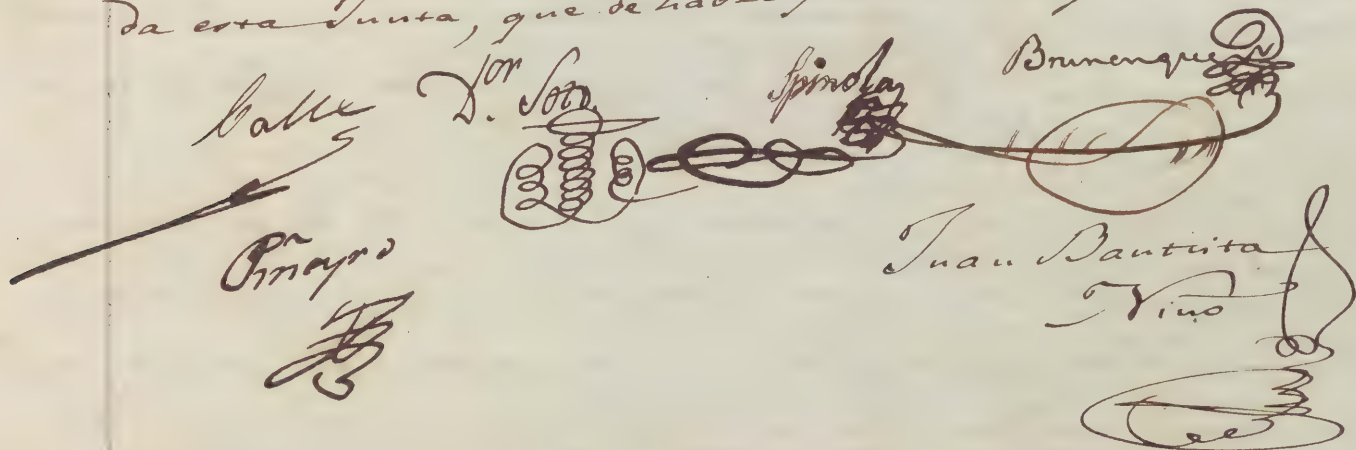 da esta Junta, que de
Calle
D.or Soto
Spinola
Brunenque
Piñeyro
Juan Bautista
Nino